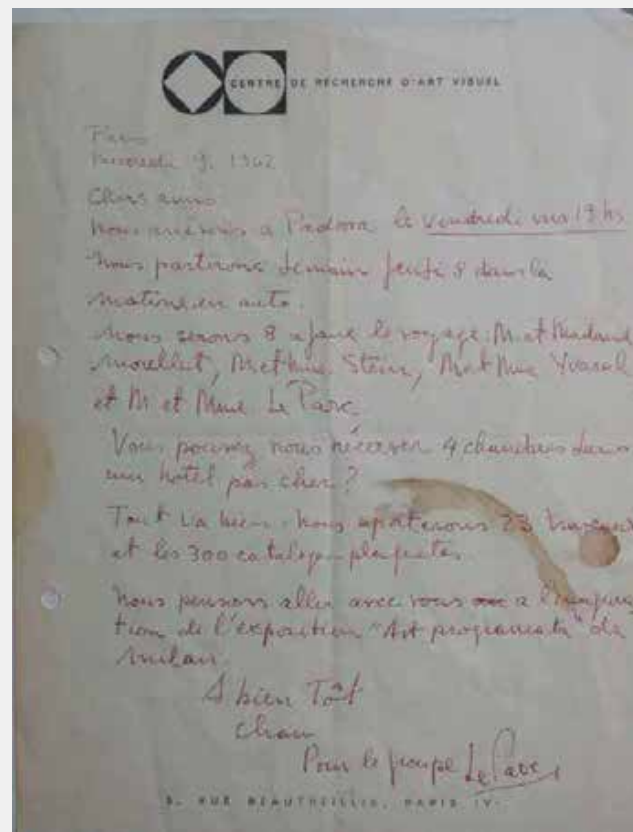 CENTRE DE RECHERCHE D'ART VISUEL
Paris
1962
Chers amis
nous à Padova le vendredi 19 hs
nous partirons demain jeudi 8 dans la
matine en auto.
nous serons 8 a faire le voyage: M. et Madame
Morellet, M et Mme Stein, M et Mme Yvaral
et M et Mme Le Parc.
Vous pouvez nous réserver 4 chambres dans
un hotel pas cher?
Tout va bien. nous aporterons 23
et les 300
nous pensons aller avec vous a
tion de l'exposition "Art programata" de
milan.
A bien Tôt
chau
Pour le groupe Le Parc
5, RUE BEAUTREILLIS, PARIS IV